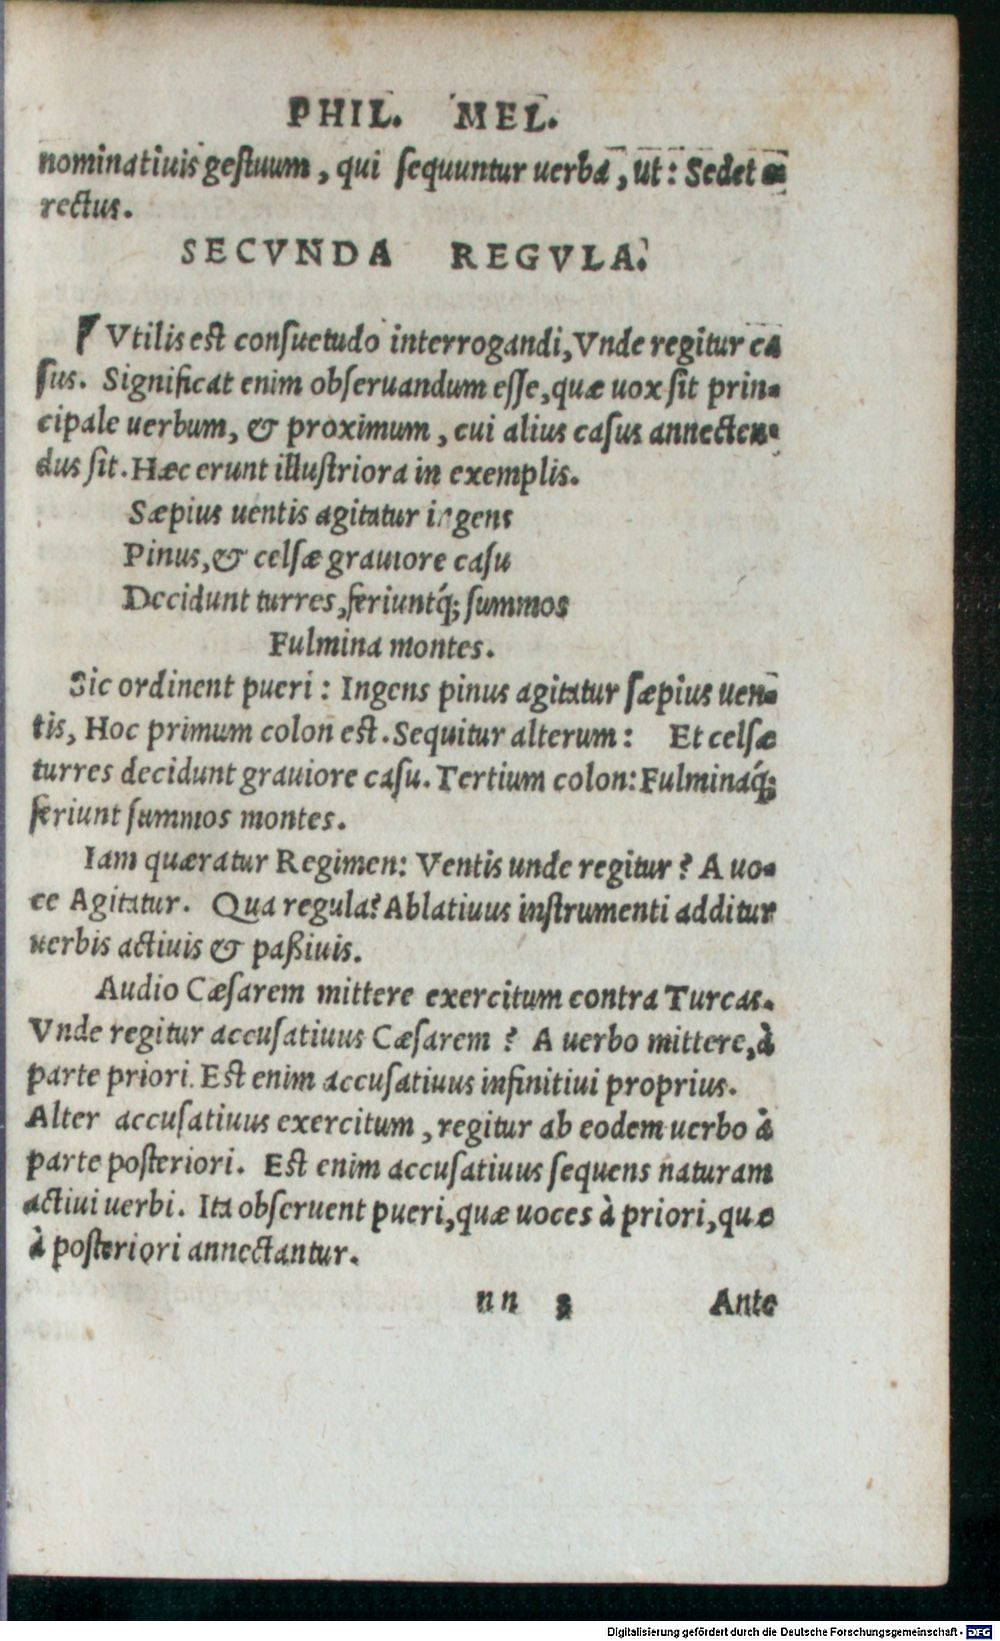 PHIL. MEL.
nominatiuis gestuum, qui sequuntur uerba, ut: Sedet e-
rectus.
SECVNDA REGVLA.
¶ Vtilis est consuetudo interrogandi, Vnde regitur ca
sus. Significat enim obseruandum esse, quæ uox sit prin-
cipale uerbum, & proximum, cui alius casus annecten-
dus sit. Hæc erunt illustriora in exemplis.
Sæpius uentis agitatur ingens
Pinus, & celsæ grauiore casu
Decidunt turres, feriuntq́; summos
Fulmina montes.
Sic ordinent pueri: Ingens pinus agitatur sæpius uen-
tis, Hoc primum colon est. Sequitur alterum: Et celsæ
turres decidunt grauiore casu. Tertium colon: Fulminaq́;
feriunt summos montes.
Iam quæratur Regimen: Ventis unde regitur? A uo-
ce Agitatur. Qua regula? Ablatiuus instrumenti additur
uerbis actiuis & paßiuis.
Audio Cæsarem mittere exercitum contra Turcas.
Vnde regitur accusatiuus Cæsarem? A uerbo mittere, à
parte priori. Est enim accusatiuus infinitiui proprius.
Alter accusatiuus exercitum, regitur ab eodem uerbo à
parte posteriori. Est enim accusatiuus sequens naturam
actiui uerbi. Ita obseruent pueri, quæ uoces à priori, quæ
à posteriori annectantur.
nn Ante
Digitalisierung gefördert durch die Deutsche Forschungsgemeinschaft - DFG